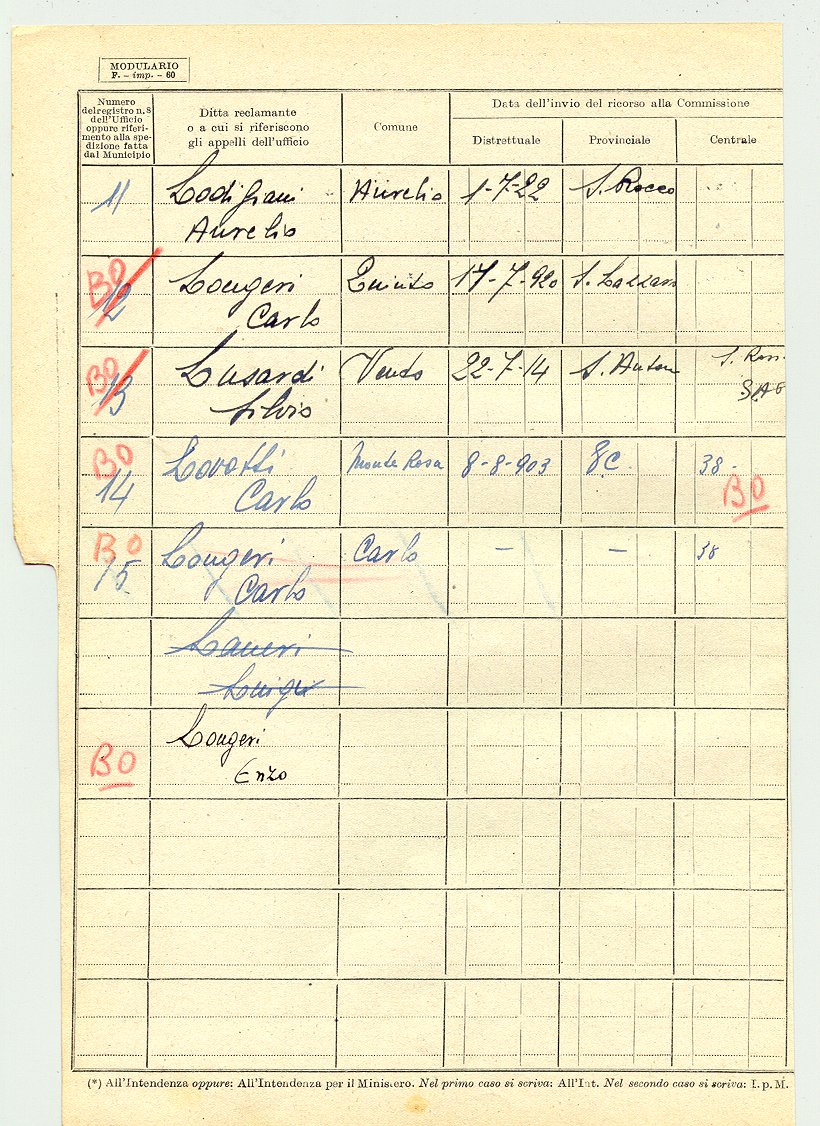 MODULARIO
F. - imp. - 60
Numero
del registro n. 8
dell'Ufficio
oppure riferi-
mento alla spe-
dizione fatta
dal Municipio
Ditta reclamante
o a cui si riferiscono
gli appelli dell'ufficio
Comune
Data dell'invio del ricorso alla Commissione
Distrettuale
Provinciale
Centrale
11 Lodigiani Aurelio 1-7-22 S. Rocco
Aurelio
BO
12 Longeri Quinto 17-7-920 S. Lazzaro
Carlo
BO
13 Lusardi Vento 22-7-14 S. Anton S. Ross.
Silvio
BO
14 Lovotti Monte Rosa 8-8-903 38-
Carlo BO
BO
15 Longeri Carlo - - 38
Carlo
Laneri
Luigi
Longeri
BO Enzo
(*) All'Intendenza oppure: All'Intendenza per il Ministero. Nel primo caso si scriva: All'Int. Nel secondo caso si scriva: I. p. M.